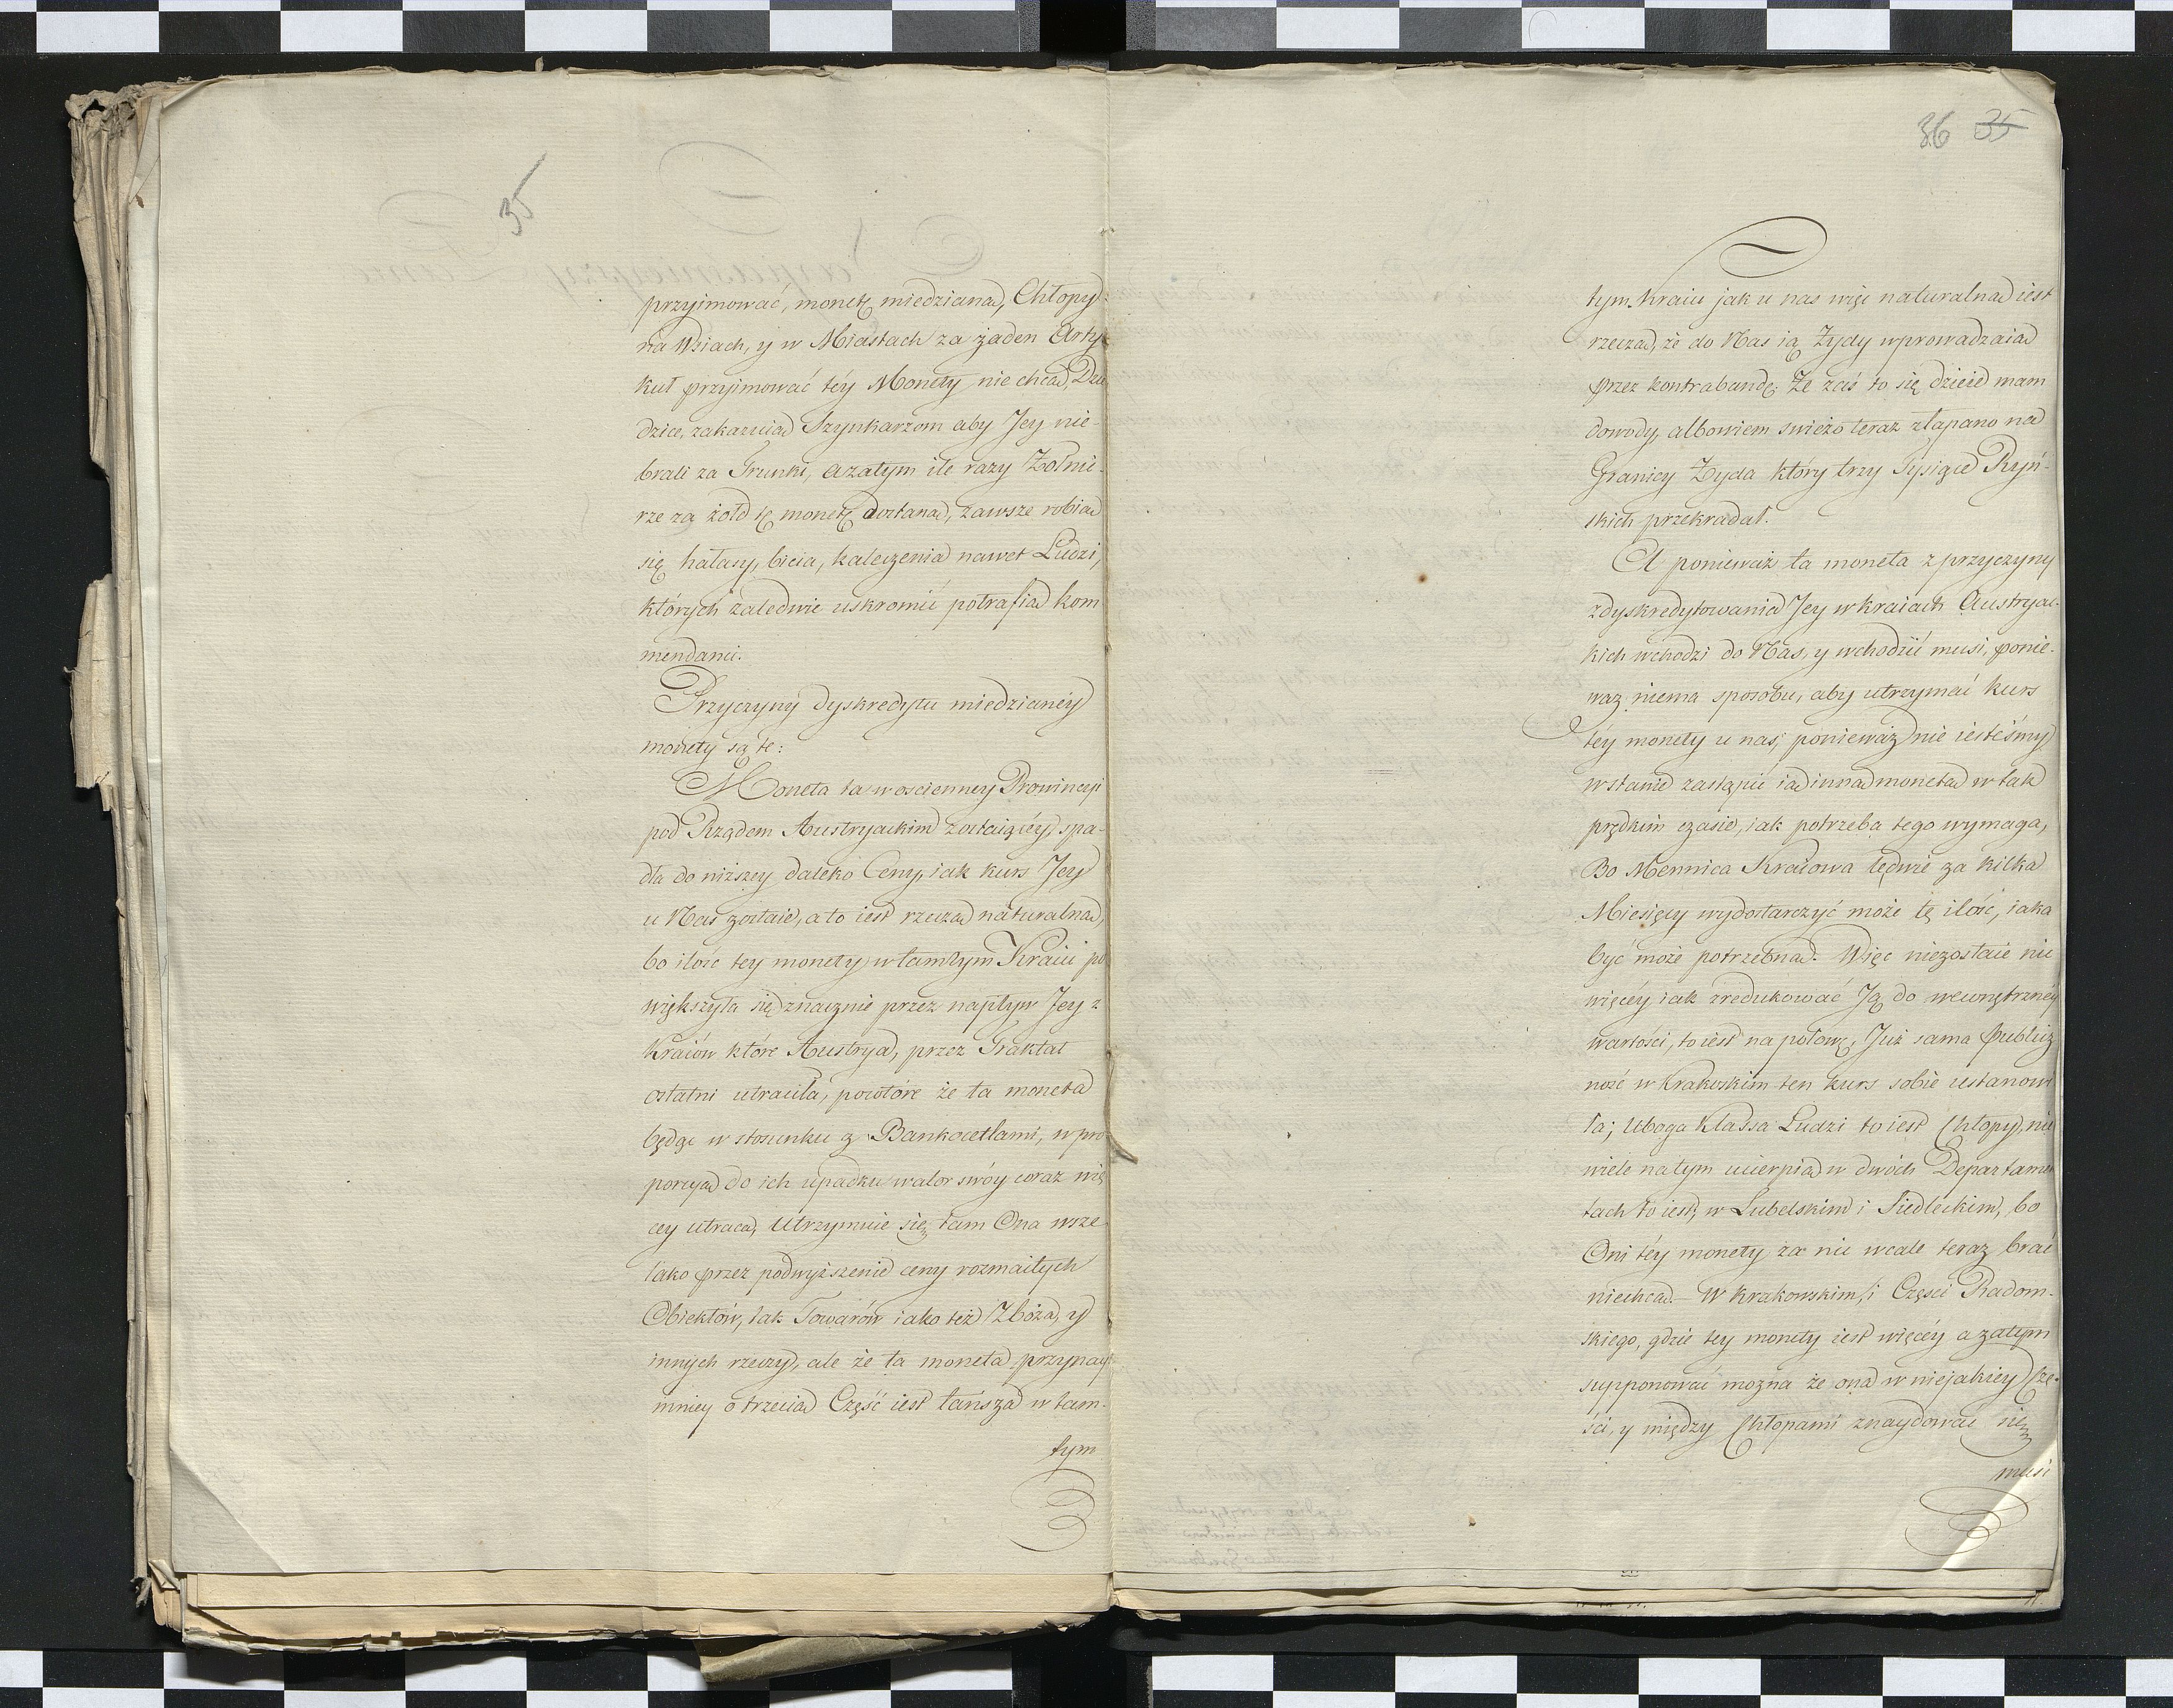 35
przyjmować, monetę miedzianą, Chłopy
na Wsiach, y w Miastach za żaden Arty
kuł przyjmować téy Monety nie chcą, Dzie
dzice, zakazuią Szynkarzom aby Jey nie-
brali za Trunki, a zatym ile razy Żołnie-
rze za żołd tę monetę dostaną, zawsze robią
się hałasy, bicia, kaleczenia nawet Ludzi,
których zaledwie uskromić potrafią kom
mendanci.
Przyczyny dyskredytu miedzianéy
monety są te:
Moneta ta w oscienney Prowincyi
pod Rządem Austryackim zostaiącéy, spa-
dła do niższey daleko Ceny, iak kurs Jey
u Nas zostaie, a to iest rzeczą naturalną,
bo ilość tey monety w tamtym Kraiu po
większyła się znacznie przez napływ Jey z
Kraiów które Austrya, przez Traktat
ostatni utraciła, powtóre że ta moneta
będąc w stosunku z Bankocetlami, w pro
porcyą do ich upadku walor swóy coraz wię
cey utraca, Utrzymuie się tam Ona wsze
lako przez podwyższenie ceny rozmaitych
Obiektów, tak Towarów iako też Zboża, y
innych rzeczy, ale że ta moneta przynay
mniey o trzecią Część iest tańsza w tam-
tym
36 35
tym Kraiu jak u nas więc naturalną iest
rzeczą, że do Nas ią Żydy wprowadzaią
przez kontrabandę. Że zaś to się dzieie mam
dowody, albowiem swieżo teraz złapano na
Granicy Żyda który trzy Tysiące Ryń-
skich przekradał.
A ponieważ ta moneta z przyczyny
zdyskredytowania Jey w kraiach Austryac-
kich wchodzi do Nas, y wchodzić musi, ponie-
waż niema sposobu, aby utrzymać kurs
téy monety u nas, ponieważ nie iesteśmy
w stanie zastąpić ią inną monetą w tak
prędkim czasie, iak potrzeba tego wymaga,
Bo Mennica Kraiowa ledwie za kilka
Miesięcy wydostarczyć może tę ilość, iaka
być może potrzebna. Więc niezostaie nic
więcéy iak zredukować Ją do wewnętrznéy
wartości, to iest na połowę, Już sama Publicz
ność w Krakowskim ten kurs sobie ustanowi
ła; Uboga Klassa Ludzi to iest Chłopy, nie
wiele na tym ucierpią w dwóch Departamen
tach to iest, w Lubelskim i Siedleckim, bo
Oni téy monety za nic wcale teraz brać
niechcą. W Krakowskim, i Części Radom-
skiego, gdzie tey monety iest więcéy a zatym
supponować można że ona w niejakiey Czę-
ści, y między Chłopami znaydować się
musi